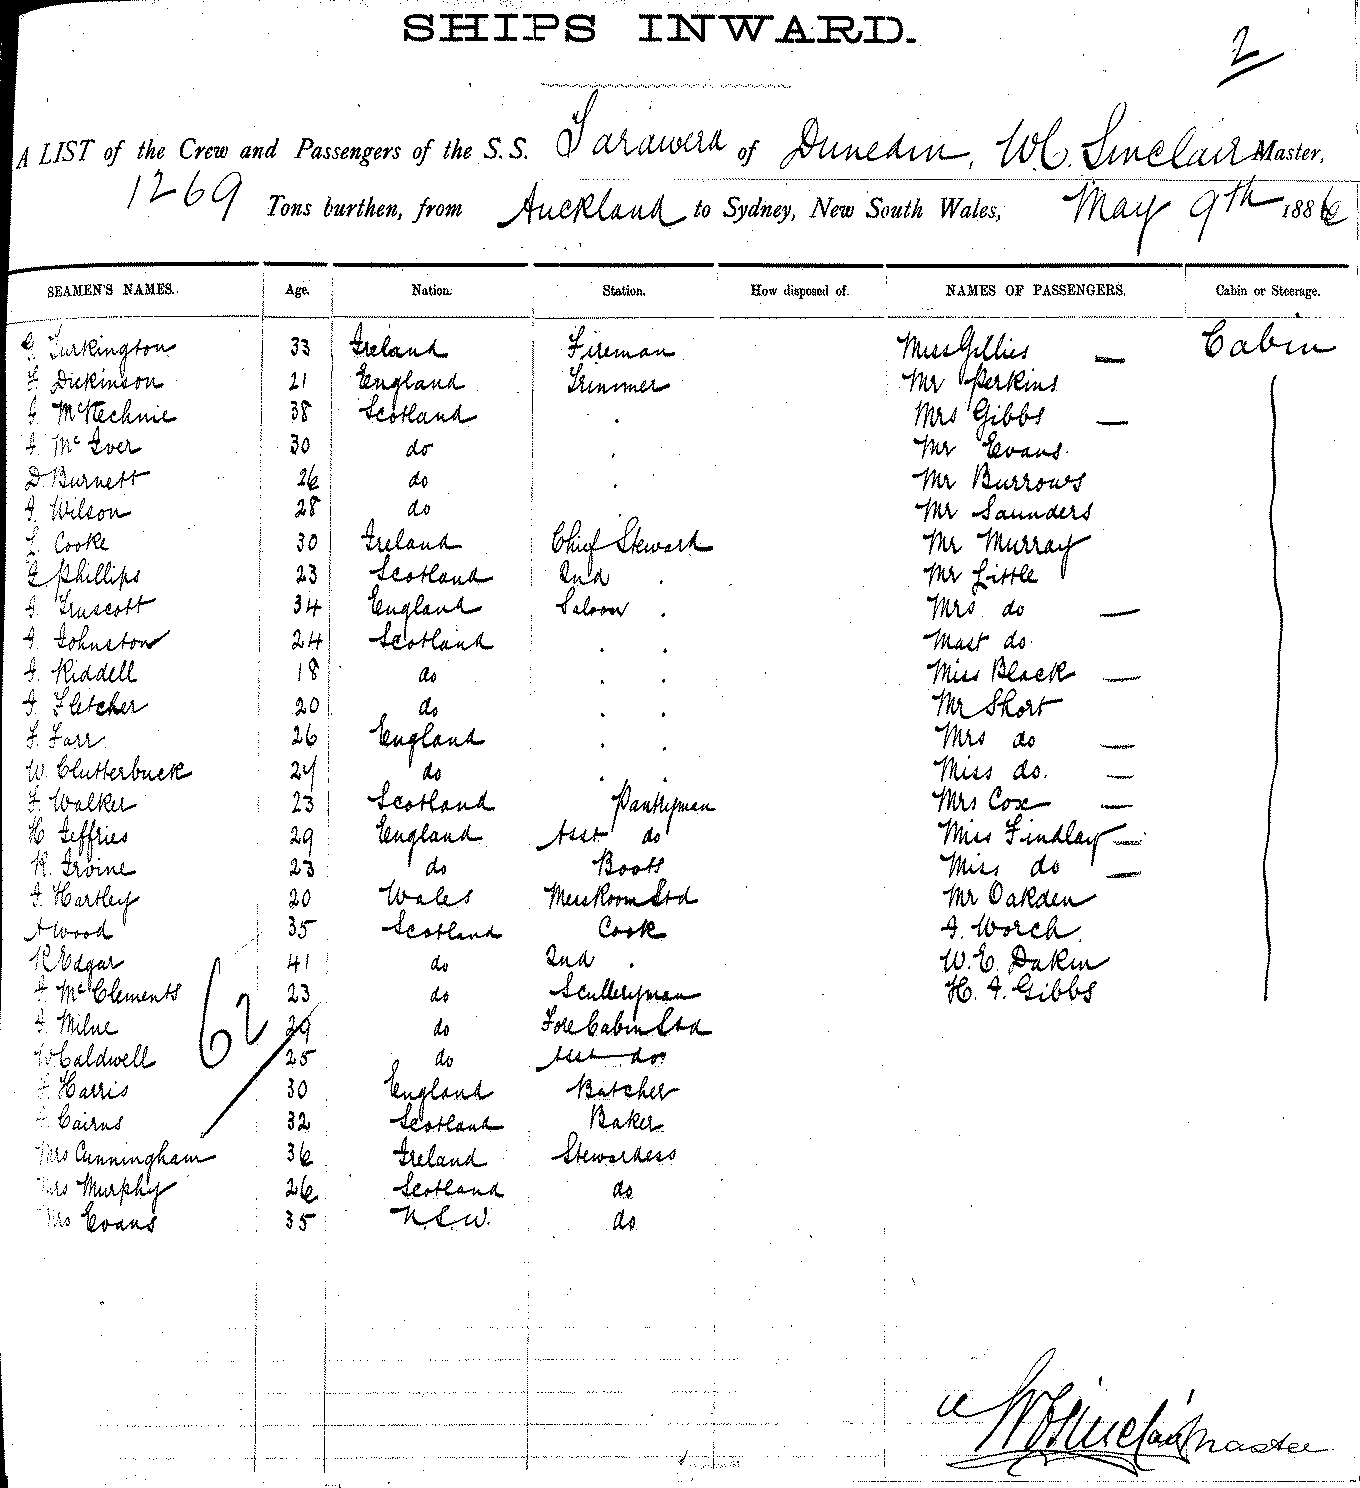 SHIPS INWARD.
2
A LIST of the Crew and Passengers of the S.S. Tarawera of Dunedin, W.C. Sinclair Master,
1269 Tons burthen, from Auckland to Sydney, New South Wales, May 9th 1886
SEAMEN'S NAMES. Age. Nation. Station. How disposed of. NAMES OF PASSENGERS. Cabin or Steerage.
Turkington 33 Ireland Fireman Miss Gillies — Cabin
Dickinson 21 England Trimmer Mr Perkins
McKechnie 38 Scotland . Mrs Gibbs —
J. McIver 30 do . Mr Evans.
D. Burnett 26 do . Mr Burrows
J. Wilson 28 do Mr Saunders
Cooke 30 Ireland Chief Steward Mr Murray
Phillips 23 Scotland 2nd . Mr Little
J. Truscott 34 England Saloon . Mrs do —
J. Johnston 24 Scotland . . Mast do.
J. Riddell 18 do . . Miss Black —
J. Fletcher 20 do . . Mr Short
F. Farr 26 England . . Mrs do —
W. Clutterbuck do . . Miss do. —
F. Walker 23 Scotland Pantryman Mrs Cox —
H Jeffries 29 England Asst do Miss Findlay —
R. Irvine 23 do Boots Miss do —
J. Hartley 20 Wales Mess Room Std Mr Oakden
A Wood 35 Scotland Cook J. Worch.
R Edgar 41 do 2nd . W. E. Dakin
J McClements 23 do Sculleryman H. J. Gibbs
J. Milne 29 do Fore Cabin Std
62
W Caldwell 25 do Asst do
Harris 30 England Butcher
Cairns 32 Scotland Baker
Mrs Cunningham 36 Ireland Stewardess
Mrs Murphy 26 Scotland do
Mrs Evans 35 N.S.W. do
W C Sinclair Master